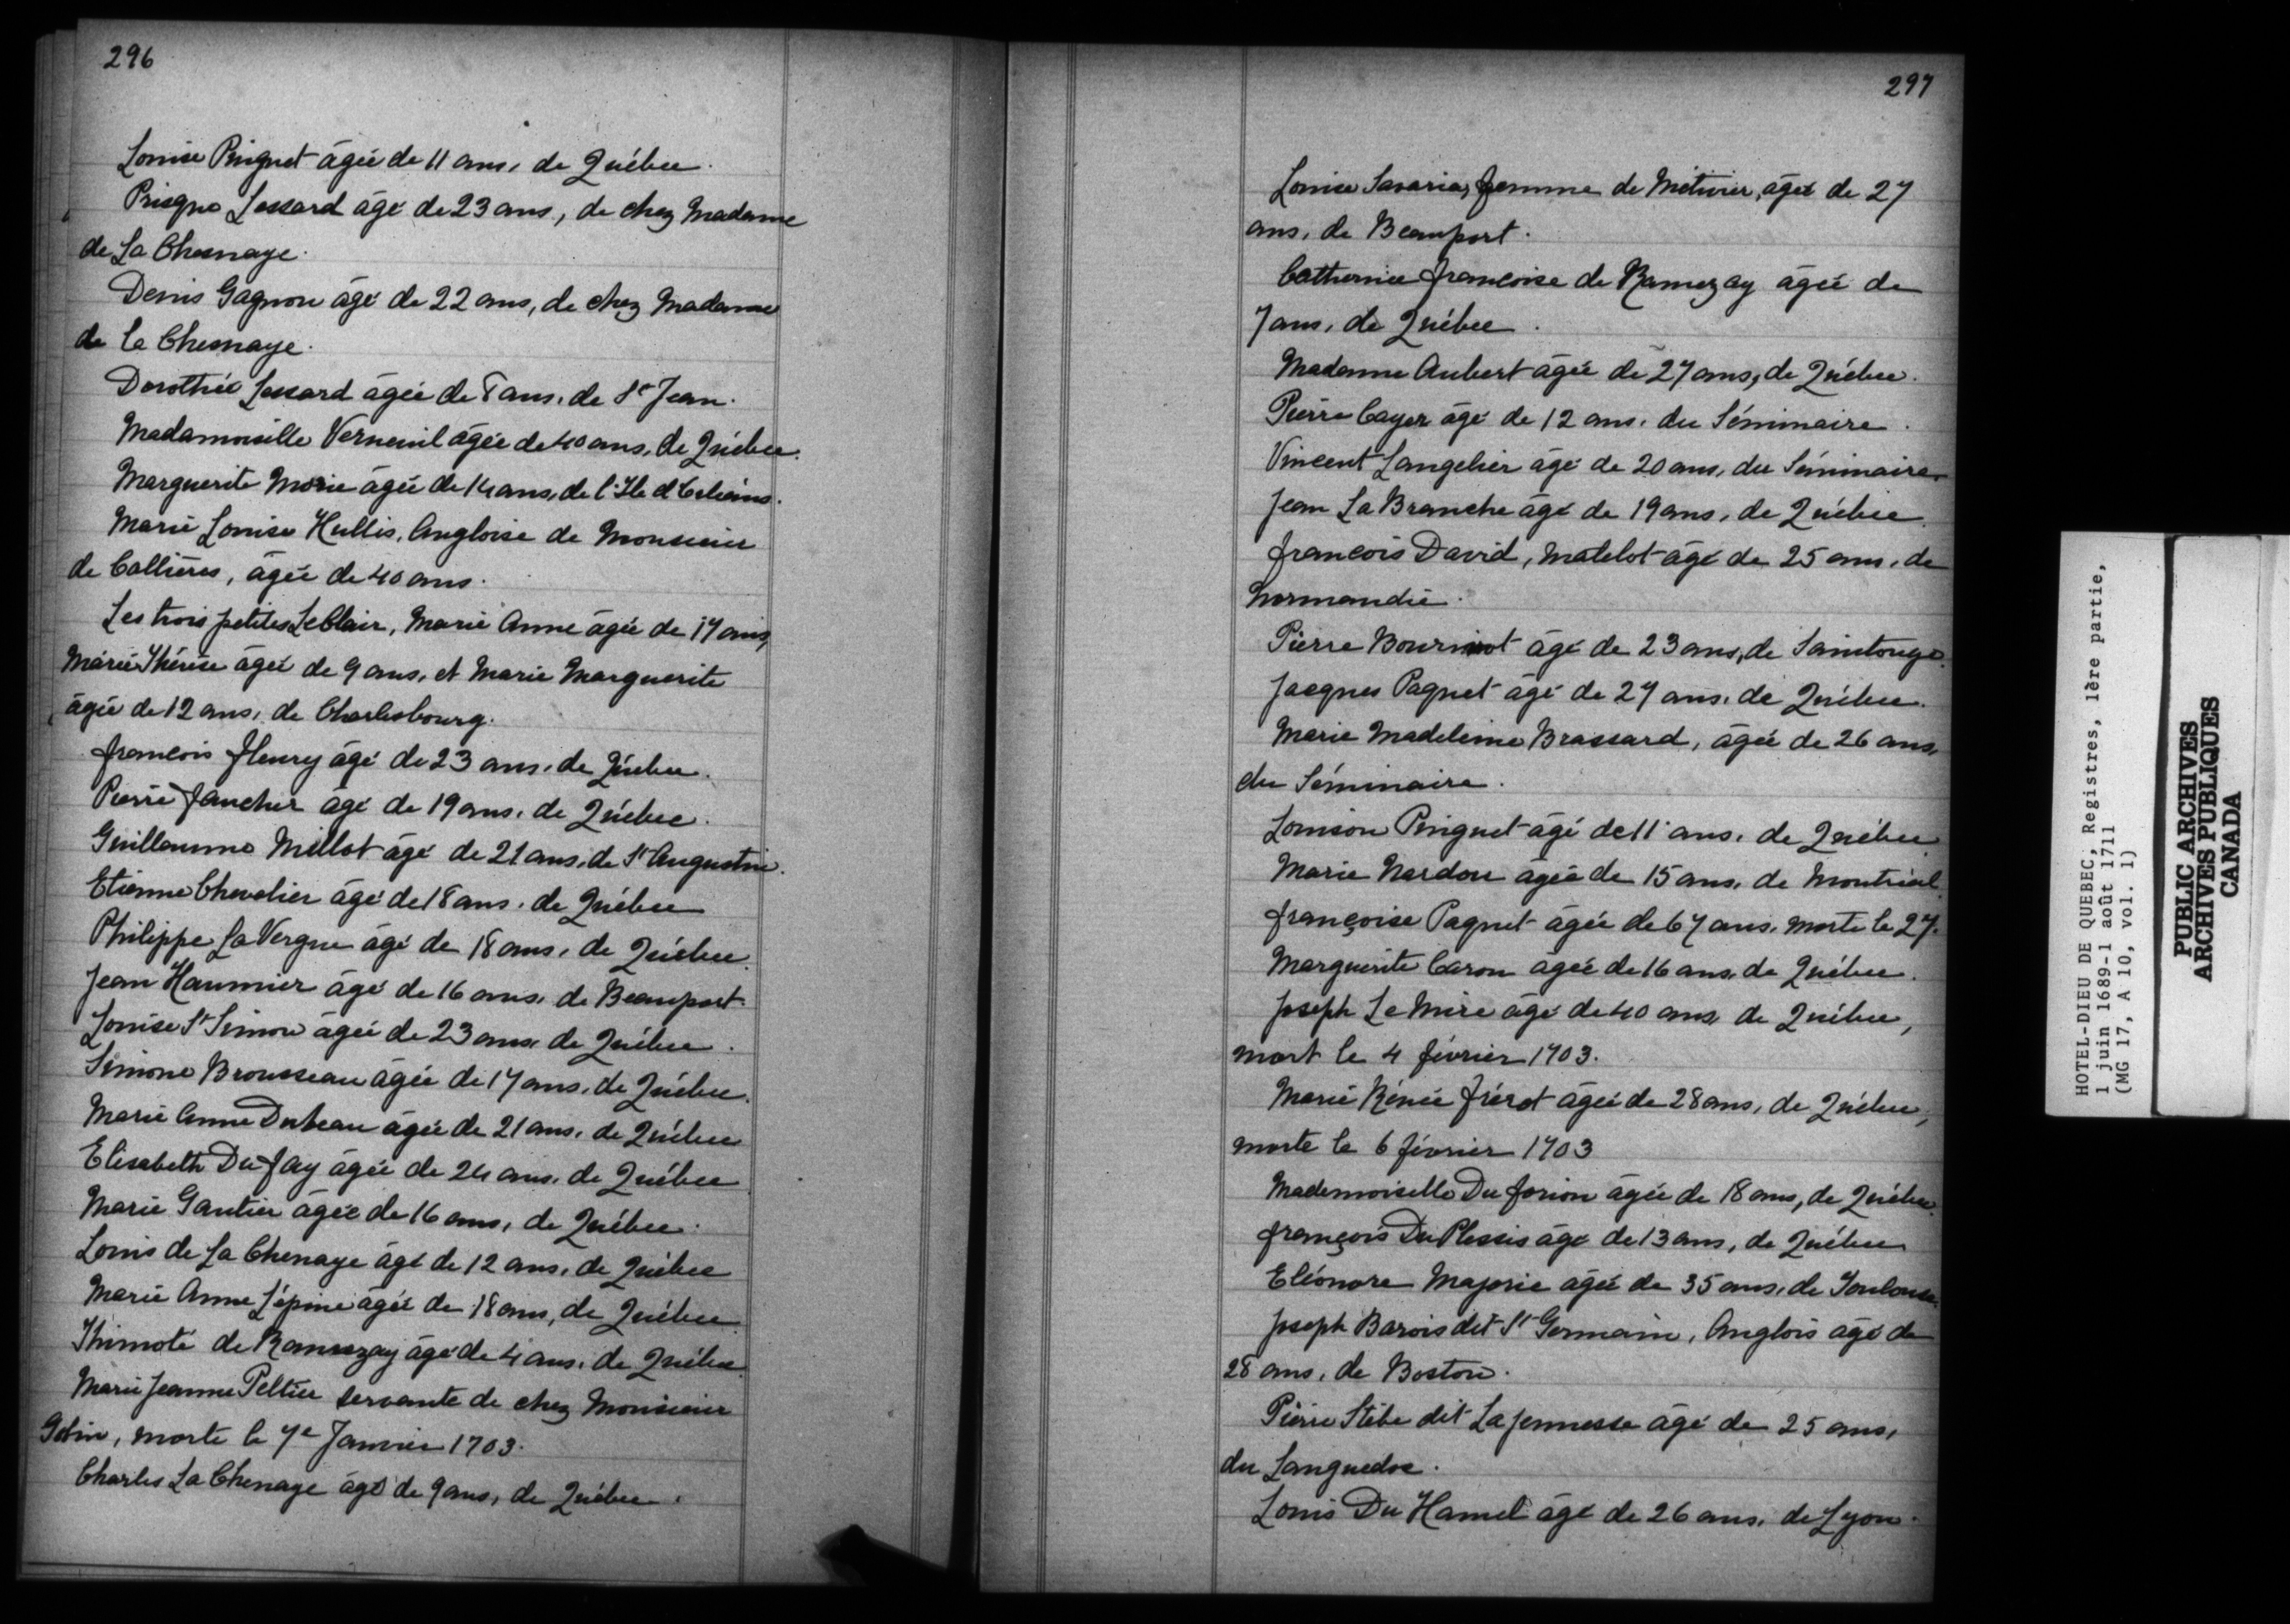 296
Louise Pinguet âgée de 11 ans, de Québec.
Prisque Lessard âgé de 23 ans, de chez Madame
de La Chesnaye.
Denis Gagnon âgé de 22 ans, de chez Madame
de la Chesnaye.
Dorothée Lessard âgée de 8 ans, de St Jean.
Madamoiselle Verneuil âgée de 40 ans, de Québec.
Marguerite Morie âgée de 14 ans, de l'Ile d'Orléans.
Marie Louise Hullis, Angloise de Monsieur
de Callières, âgée de 40 ans.
Les trois petites LeClair, Marie Anne âgée de 17 ans,
Marie Thérèse âgée de 9 ans, et Marie Marguerite
âgée de 12 ans, de Charlesbourg.
francois fleury âgé de 23 ans, de Québec.
Pierre faucher âgé de 19 ans, de Québec.
Guillaume Millot âgé de 21 ans, de St Augustin.
Etienne Chevalier âgé de 18 ans, de Québec
Philippe La Vergne âgé de 18 ans, de Québec.
Jean Haumier âgé de 16 ans, de Beauport.
Louise St Simon âgée de 23 ans, de Québec.
Simone Brousseau âgée de 17 ans, de Québec.
Marie Anne Dubeau âgée de 21 ans, de Québec
Elisabeth Du fay âgée de 24 ans, de Québec
Marie Gautier âgée de 16 ans, de Québec.
Louis de La Chenaye âgé de 12 ans, de Québec
Marie Anne Lépine âgée de 18 ans, de Québec
Thimoté de Ramezay âgé de 4 ans, de Québec
Marie Jeanne Peltier servante de chez Monsieur
Gobin, morte le 7e Janvier 1703.
Charles La Chenaye âgé de 9 ans, de Québec.
297
Louise Savaria, femme de Métivier, âgée de 27
ans, de Beauport.
Catherine francoise de Ramezay âgée de
7 ans, de Québec.
Madame Aubert âgée de 27 ans, de Québec.
Pierre Cayer âgé de 12 ans, du Séminaire.
Vincent Langelier âgé de 20 ans, du Séminaire.
Jean La Branche âgé de 19 ans, de Québec.
francois David, matelot âgé de 25 ans, de
Normandie.
Pierre âgé de 23 ans, de Saintonge.
Jacques Paquet âgé de 27 ans, de Québec.
Marie Madeleine Brassard, âgée de 26 ans,
du Séminaire.
Louison Pinguet âgé de 11 ans, de Québec
Marie Nardon âgée de 15 ans, de Montréal.
françoise Paquet âgée de 67 ans, morte le 27.
Marguerite Caron âgée de 16 ans, de Québec.
Joseph Le Mire âgé de 40 ans, de Québec,
mort le 4 février 1703.
Marie Rénée frérot âgée de 28 ans, de Québec,
morte le 6 février 1703
Mademoiselle Du forion âgée de 18 ans, de Québec.
françois Du Plessis âgé de 13 ans, de Québec
Eléonore Majorie âgée de 35 ans, de Toulouse.
Joseph Barois dit St Germain, Anglois âgé de
28 ans, de Boston.
Pierre Stèbe dit La jeunesse âgé de 25 ans,
du Languedoc.
Louis Du Hamel âgé de 26 ans, de Lyon.
HOTEL-DIEU DE QUEBEC, Registres, 1ère partie,
1 juin 1689-1 août 1711
(MG 17, A 10, vol. 1)
PUBLIC ARCHIVES
ARCHIVES PUBLIQUES
CANADA